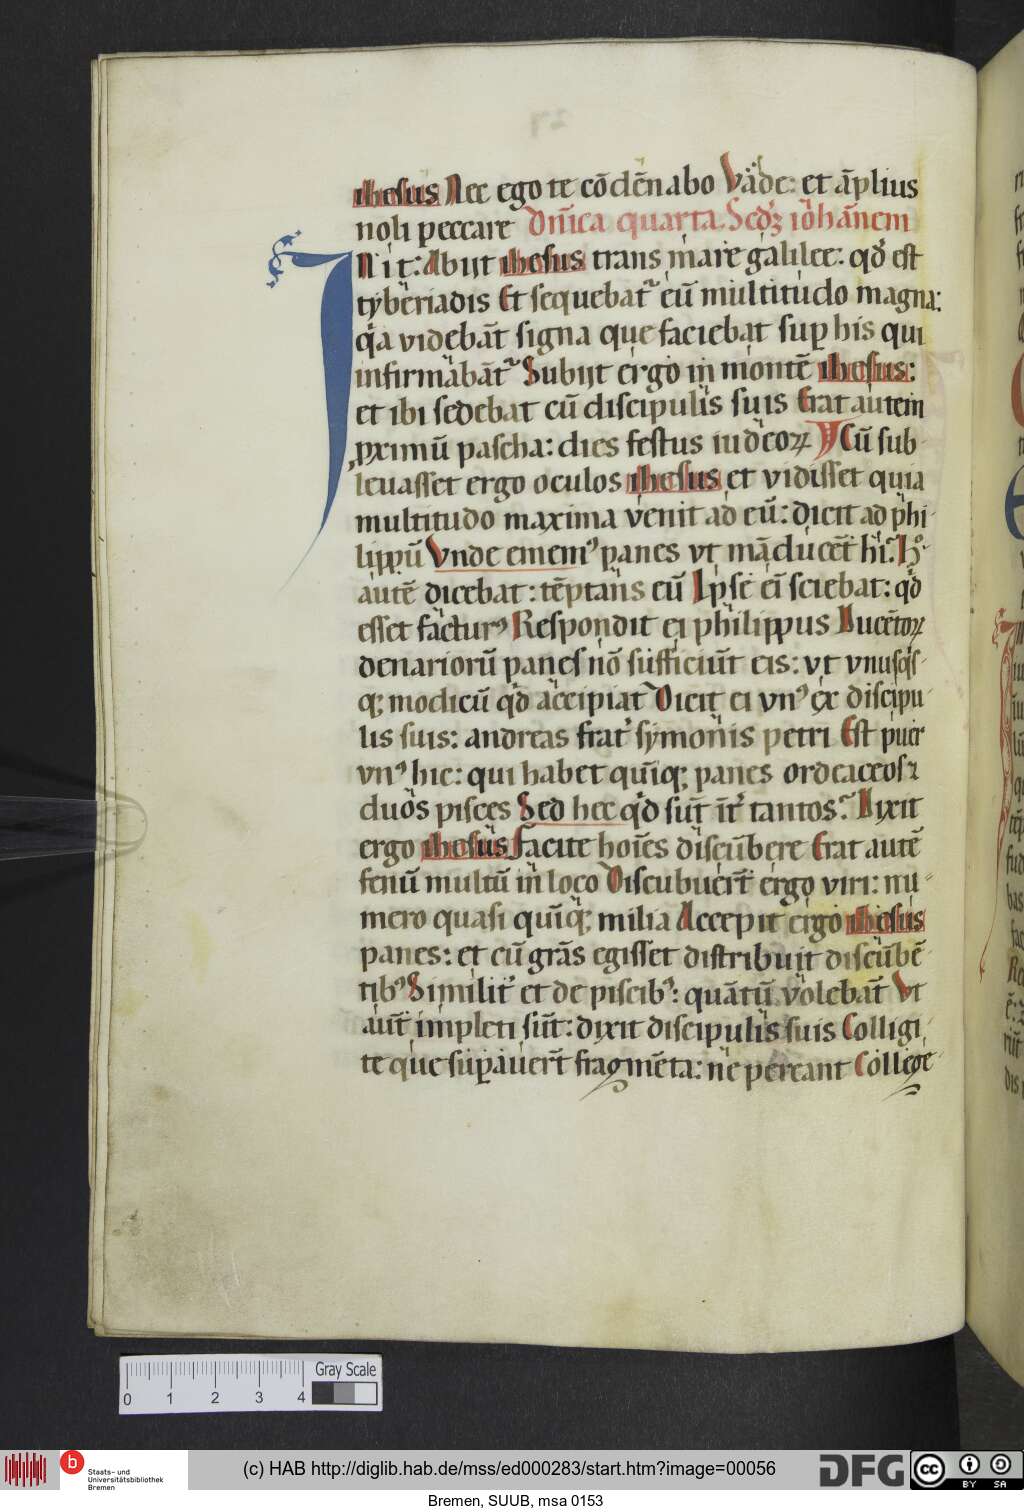 ihesus Nec ego te cōdēnabo Vade: et āplius
noli peccare Dn̄ica quarta. Sedꝫ iohānem
IN i t: Abijt ihesus trans mare galilee: qd̛ est
tyberiadis Et sequebat᷑ eū multitudo magna:
q̛a videbāt signa que faciebat suꝑ his qui
infirmabāt᷑ Subijt ergo in montē ihesus:
et ibi sedebat cū discipulis suis Erat autem
ꝓximū pascha: dies festus iudeoꝝ Cū sub-
leuasset ergo oculos ihesus et vidisset quia
multitudo maxima venit ad eū: dicit ad phi-
lippū Vnde ememꝰ panes vt māducēt hi? H°
autē dicebat: tēptans eū Ipse ei sciebat: qd̛
esset facturꝰ Respondit ei philippus Ducētoꝝ
denariorū panes nō sufficiūt eis: vt vnusqs-
qꝫ modicū qd̛ accipiat Dicit ei vnꝰ ex discipu-
lis suis: andreas frat̛ symonis petri Est puer
vnꝰ hic: qui habet quīqꝫ panes ordeaceos ⁊
duos pisces Sed hec qd̛ sūt īt̛ tantos? Dixit
ergo ihesus facite hoīes discūbere Erat autē
fenū multū in loco Discubuer̄t ergo viri: nu-
mero quasi quīqꝫ milia Accepit ergo ihesus
panes: et cū grās egisset distribuit discūbē-
tibꝰ Similit̛ et de piscibꝰ: quātū volebāt Vt
aut̄ impleti sūt: dixit discipulis suis Colligi-
te que suꝑauer̄t fragmēta: ne pereant College-
0 1 2 3 4 Gray Scale
b Staats- und Universitätsbibliothek Bremen
(c) HAB http://diglib.hab.de/mss/ed000283/start.htm?image=00056
DFG cc BY SA
Bremen, SUUB, msa 0153